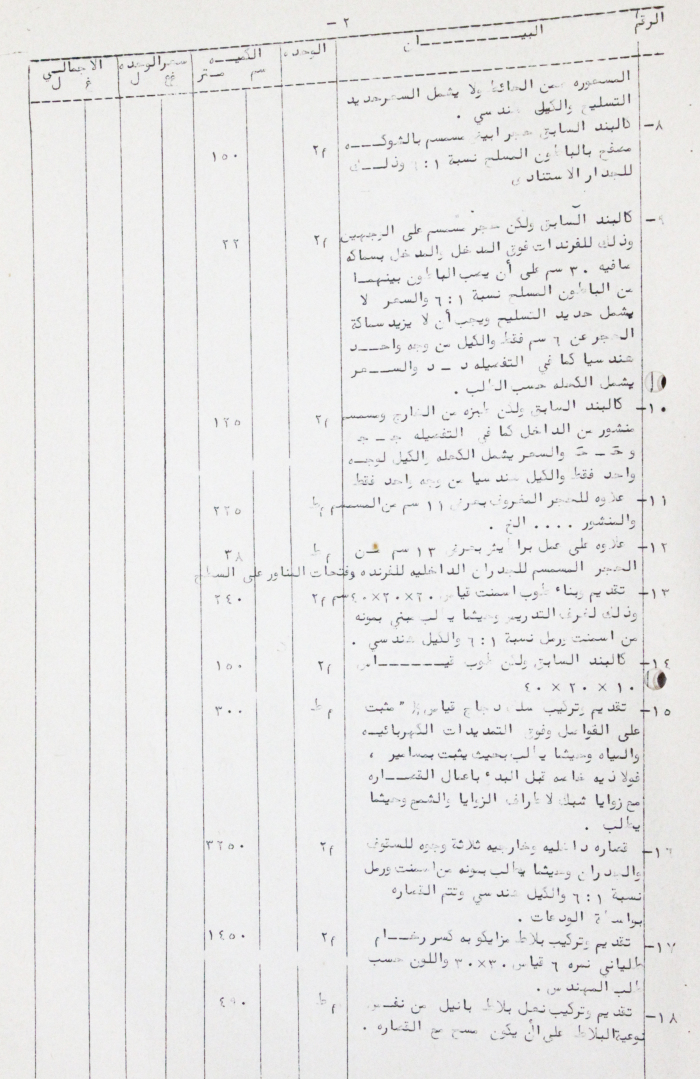 - ٢
الرقم البيـــــــــان الوحده الكميـــه سعر الوحده الاجمالـي
سم متر غ ل غ ل
المسعوره ضمن الحائط ولا يشمل السعرحديد
التسليح والكيل هندسي .
٨- كالبند السابق حجر ابيض مسمسم بالشوكــه م٢ ١٥٠
مصفح بالباطون المسلح نسبة ١ : ٦ وذلــك
للجدار الاستنادى
٩- كالبند السابق ولكن حجر مسمسم على الوجهين م٢ ٢٢
وذلك للفرندات فوق المدخل والمدخل بسماكه
صافيه ٣٠ سم على أن يصب الباطون بينهمـا
من الباطون المسلح نسبة ١ : ٦ والسعر لا
يشمل حديد التسليح ويجب أن لا يزيد سماكة
الحجر عن ٦ سم فقط والكيل من وجه واحــد
هندسيا كما في التفصيله د ـ د والســعر
يشمل الكحله حسب الطلب .
١٠- كالبند السابق ولكن طبزه من الخارج ومسمسم م٢ ١٢٥
منشور من الداخل كما في التفصيله جـ ـ جـ
و حـَ ـ حـَ والسعر يشمل الكحله والكيل لوجـه
واحد فقط والكيل هندسيا من وجه واحد فقط
١١- علاوه للحجر المفروف بعرض ١١ سم من المسمسم م ط ٢٢٥
والمنشور .... الخ .
١٢- علاوه على عمل براطيش بعرض ١٣ سم مـن م ط ٣٨
الحجر المسمسم للجدران الداخليه للفرنده وفتحات المناور على السطح
١٣- تقديم وبناء طوب اسمنت قياس ٢٠×٢٠×٤٠سم م٢ ٢٤٠
وذلك لغرف التدريس وحيثما يطلب مبني بمونه
من اسمنت ورمل نسبة ١ : ٦ والكيل هندسي .
١٤- كالبند السابق ولكن طوب قيـــــــاس م٢ ١٥٠
١٠ × ٢٠ × ٤٠
١٥- تقديم وتركيب شبك دجاج قياس مثبت م ط ٣٠٠
على الفواصل وفوق التمديدات الكهربائيـه
والمياه وحيثما يطلب بحيث يثبت بمسامير ،
فولاذيه خاصه قبل البدء باعمال القصــاره
مع زوايا شبك لاطراف الزوايا والشمع وحيثما
يطلب .
١٦- قصاره داخليه وخارجيه ثلاثة وجوه للسقوف م٢ ٣٢٥٠
والجدران وحيثما يطلب بمونه من اسمنت ورمل
نسبة ١ : ٦ والكيل هندسي وتتم القصاره
بواسطة الودعات .
١٧- تقديم وتركيب بلاط مزايكو به كسر رخـام م٢ ١٤٥٠
طلياني نمره ٦ قياس ٣٠×٣٠ واللون حسب
طلب المهندس .
١٨- تقديم وتركيب نعل بلاط بانيل من نفـس م ط
نوعية البلاط على أن يكون مسح مع القصاره .